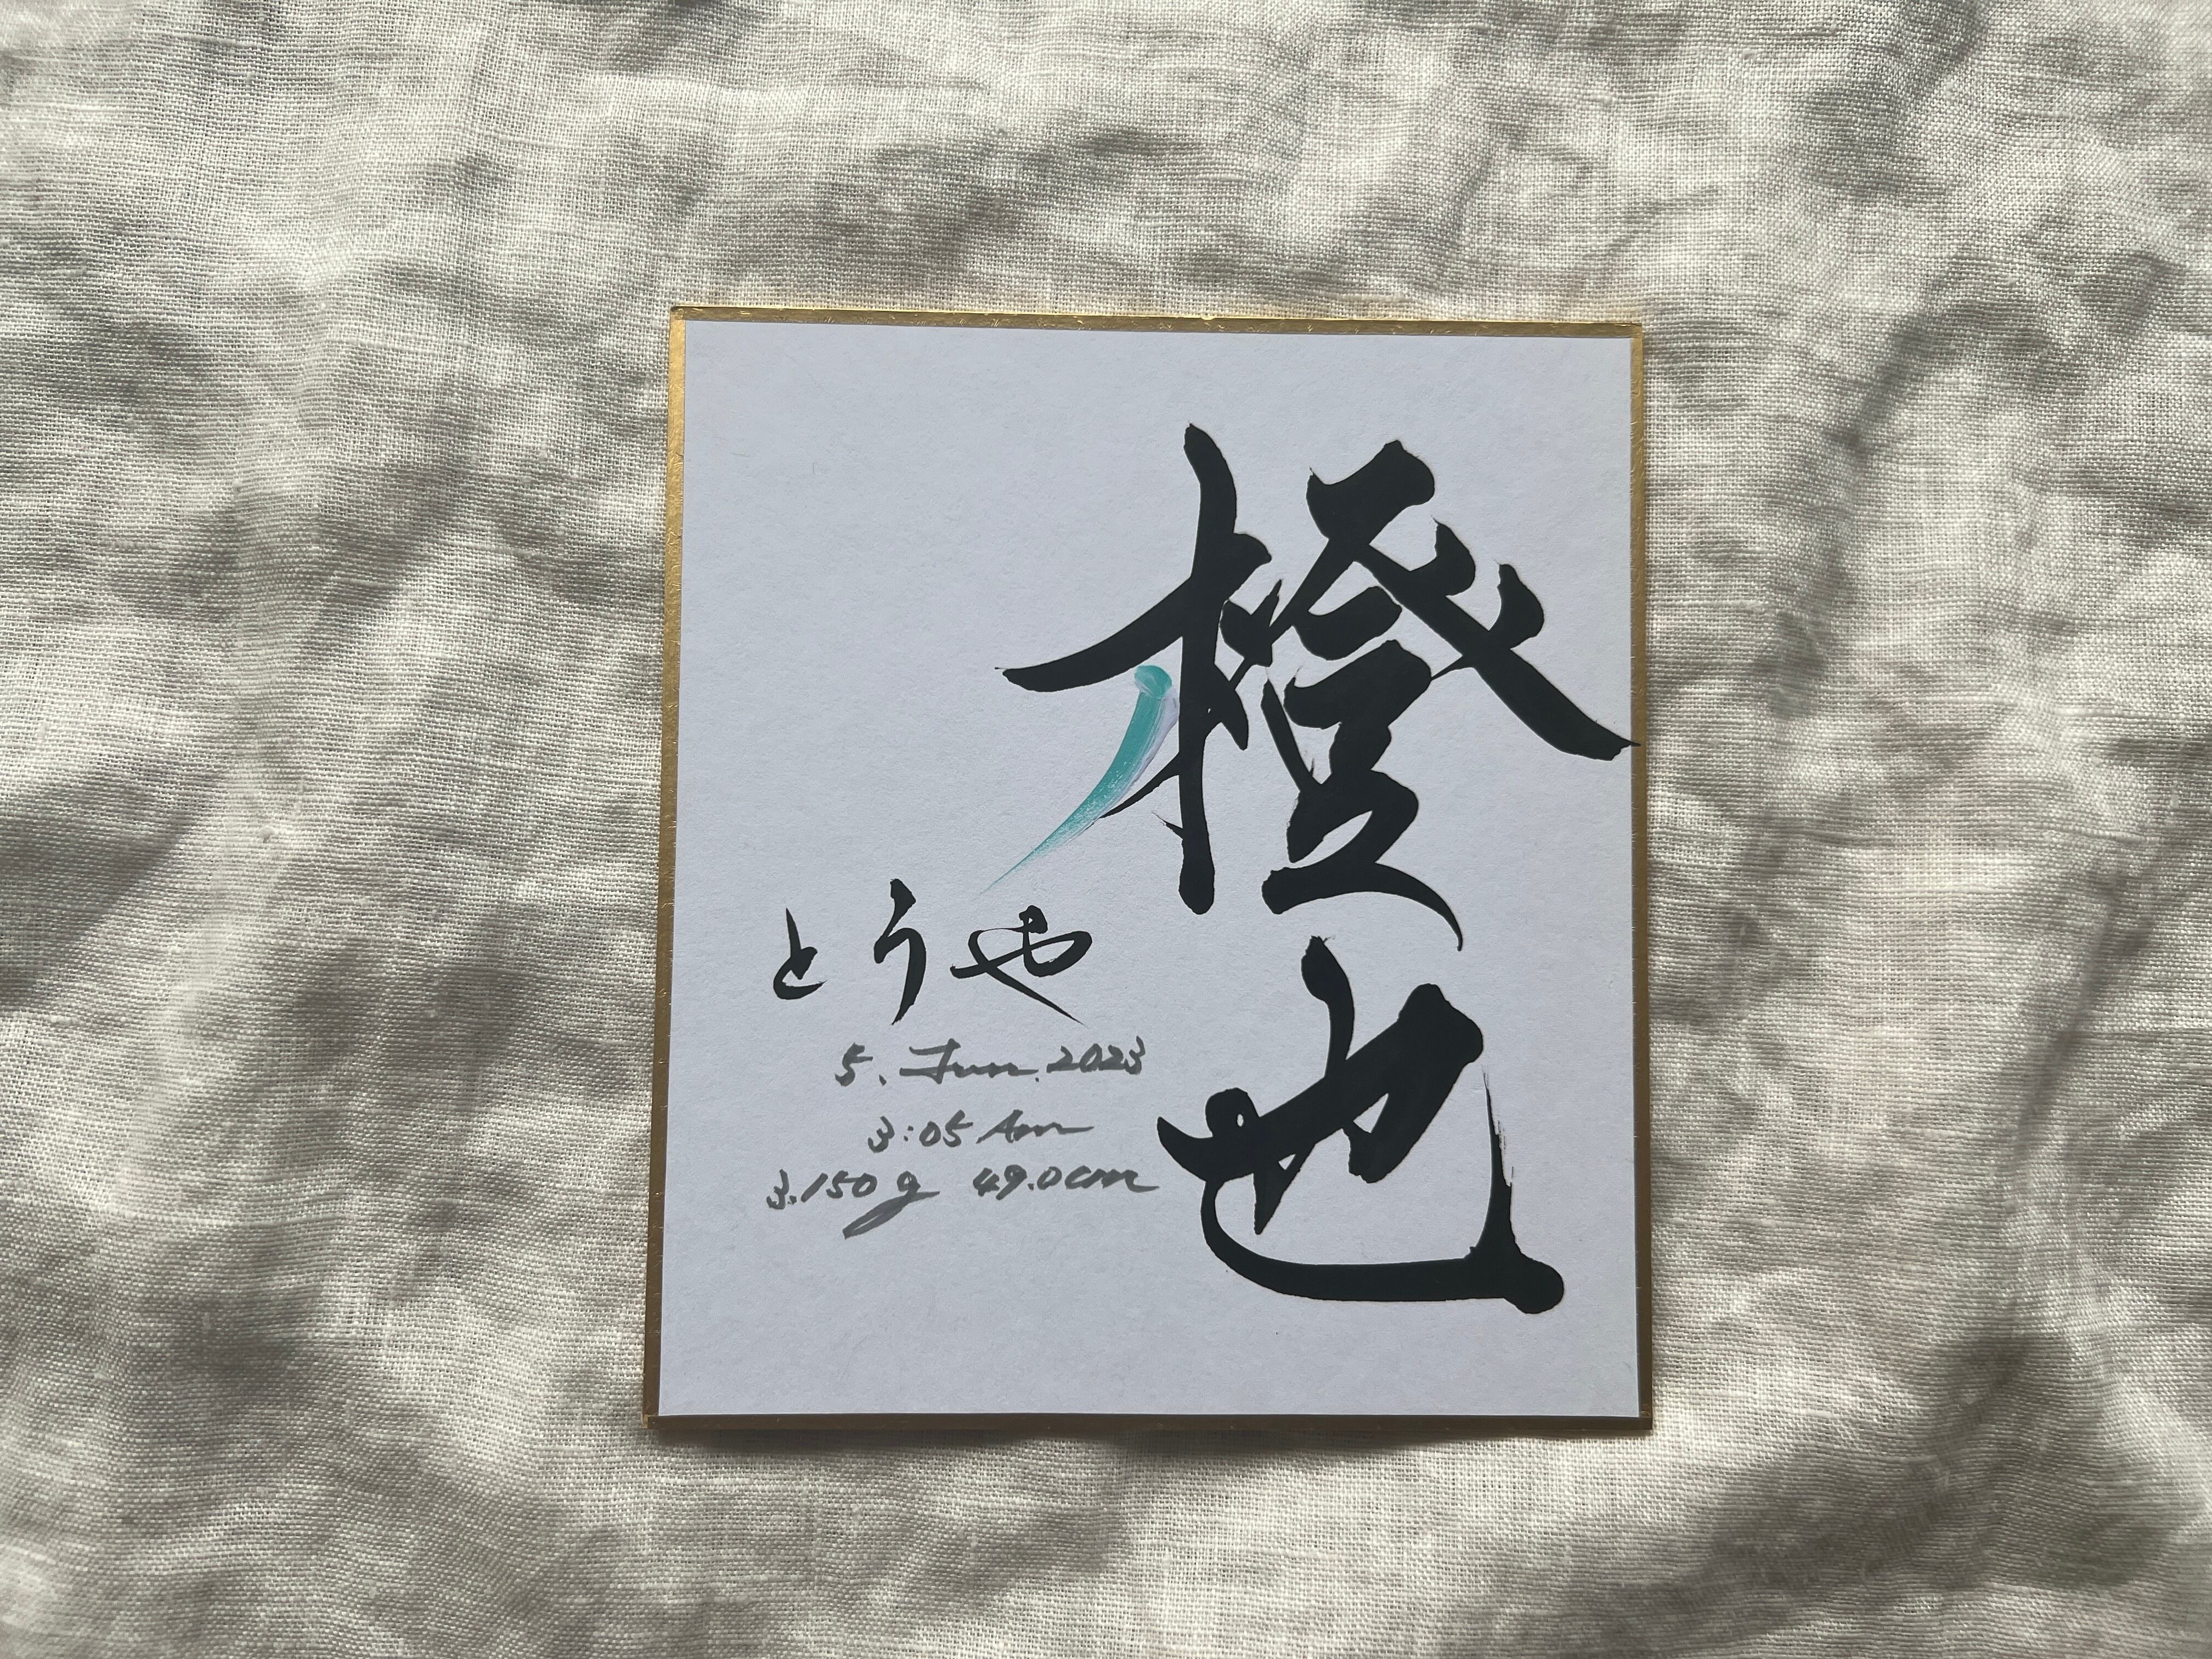 橙也
とうや
5. Jun. 2023
3:05 Am
3.150g 49.0cm